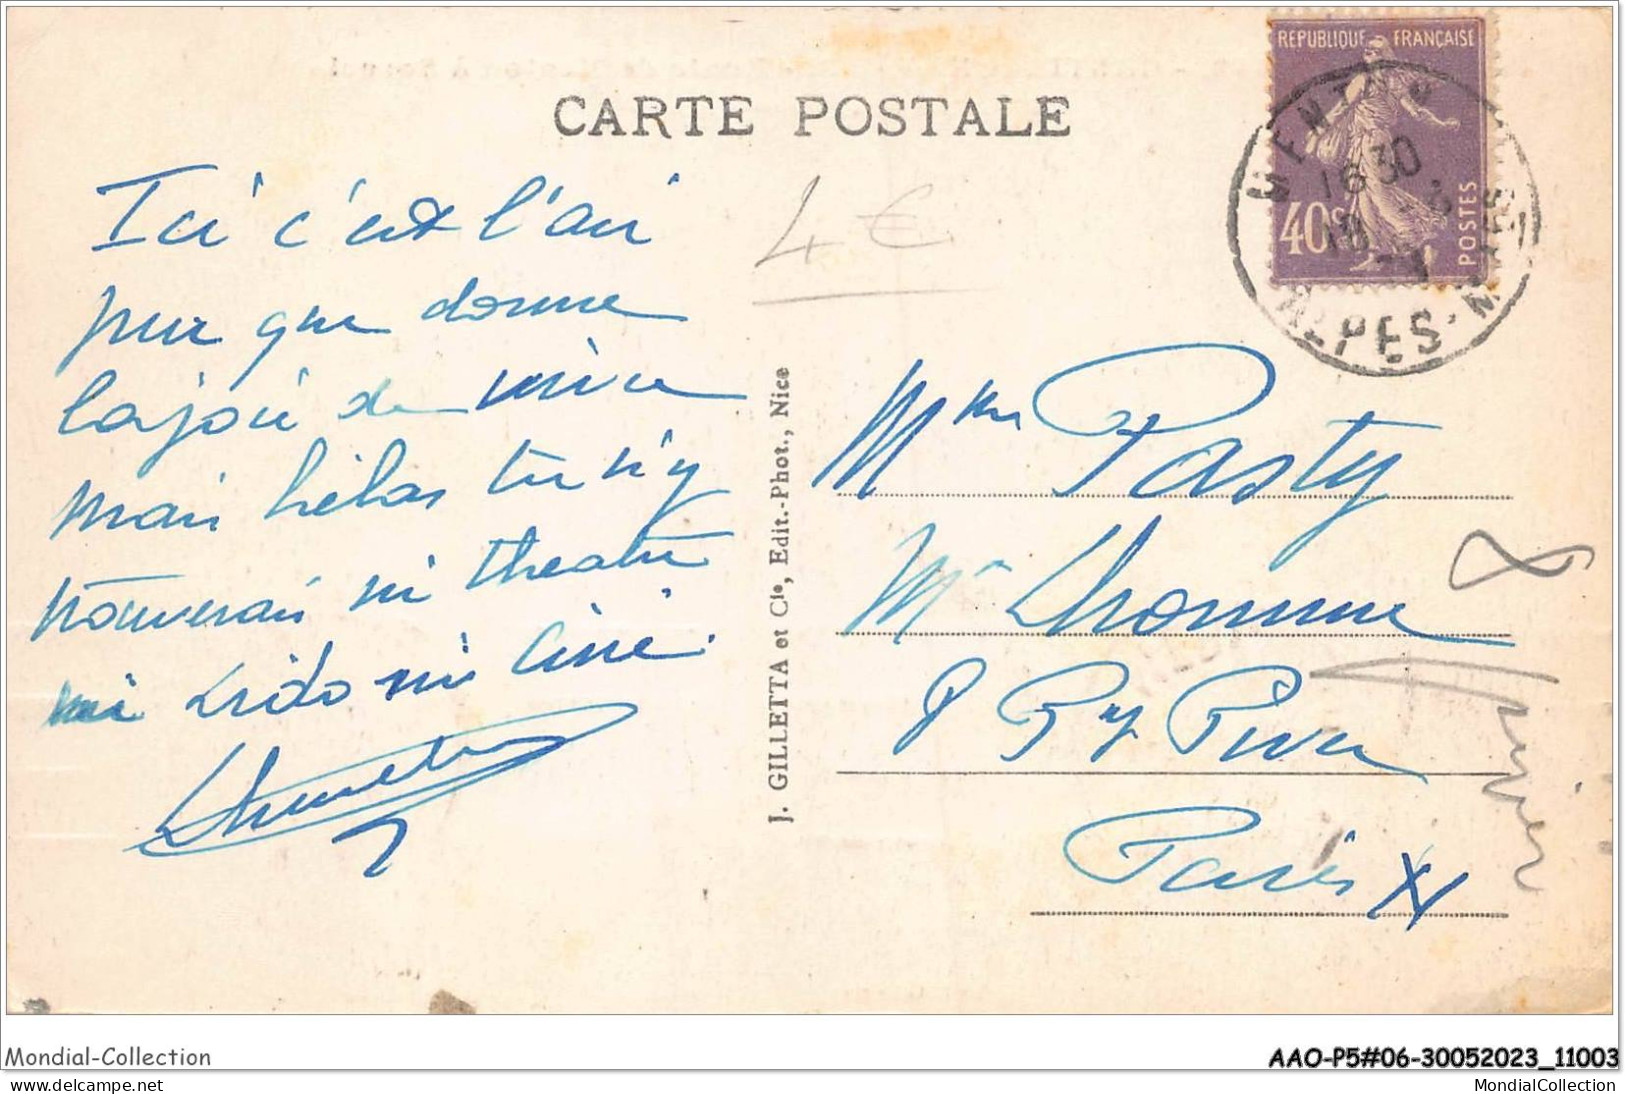 CARTE POSTALE
REPUBLIQUE FRANÇAISE
40c
POSTES
16 30
ALPES-M
4 €
Ici c'est l'air
pur que donne
la joie de vivre
mais hélas tu n'y
trouverais ni theatre
ni Lido ni Ciné.
J. GILLETTA et Cie, Edit.-Phot., Nice
Mme Pasty
Mr Lhomme
8
Paris XI
Mondial-Collection
AAO-P5#06-30052023_11003
delcampe.net
MondialCollection